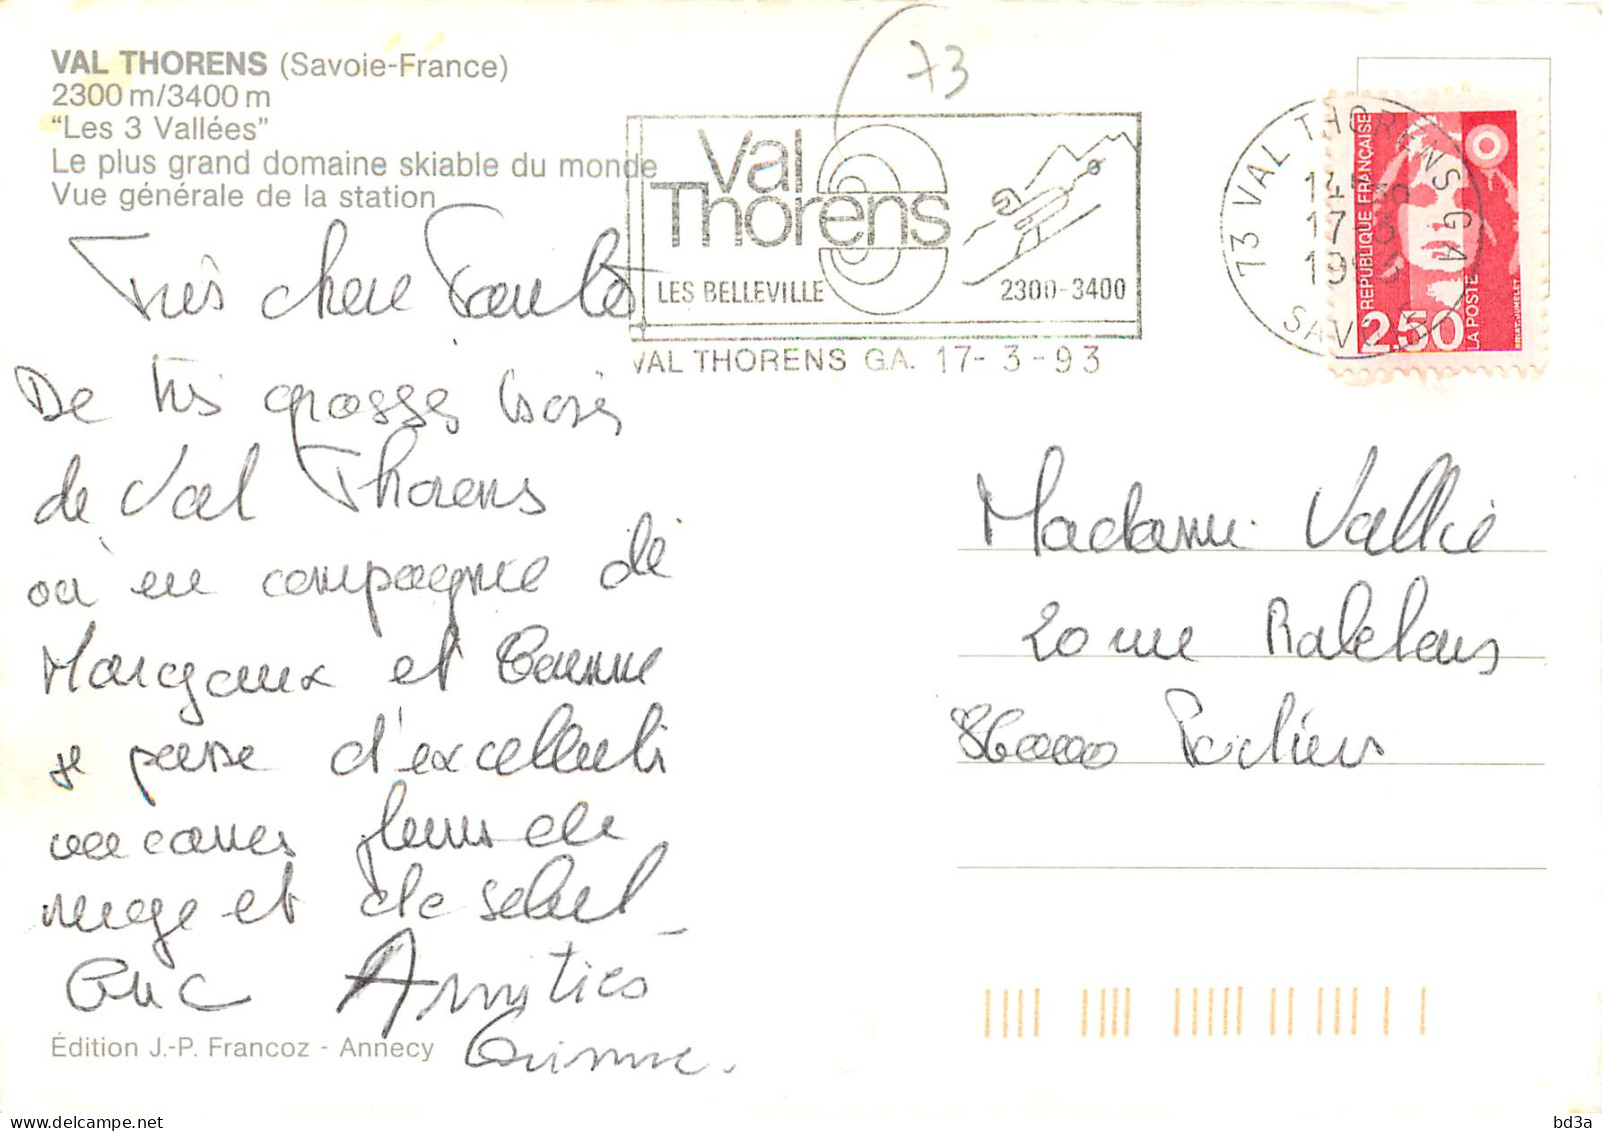 VAL THORENS (Savoie-France)
2300 m/3400 m
"Les 3 Vallées"
Le plus grand domaine skiable du monde
Vue générale de la station
73
Val
Thorens
LES BELLEVILLE 2300-3400
VAL THORENS G.A. 17-3-93
73 VAL THORENS G A
17-3
SAVOIE
REPUBLIQUE FRANÇAISE
LA POSTE
2,50
Très chère
De très grosses bises
de Val Thorens
où en compagnie de
Margaux et
je passe d'excellentes
vacances pleines de
neige et de soleil
Amitiés
Édition J.-P. Francoz - Annecy
Madame Vallée
20 rue Rabelais
86000 Poitiers
bd3a